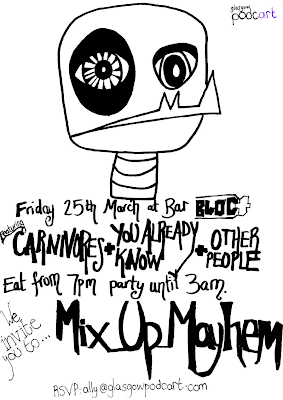 glasgow
podcart
Friday 25th March at Bar BLOC+
featuring CARNIVORES + YOU ALREADY KNOW + OTHER PEOPLE
Eat from 7pm party until 3am.
We invite you to...
Mix Up Mayhem
RSVP: ally@glasgowpodcart.com